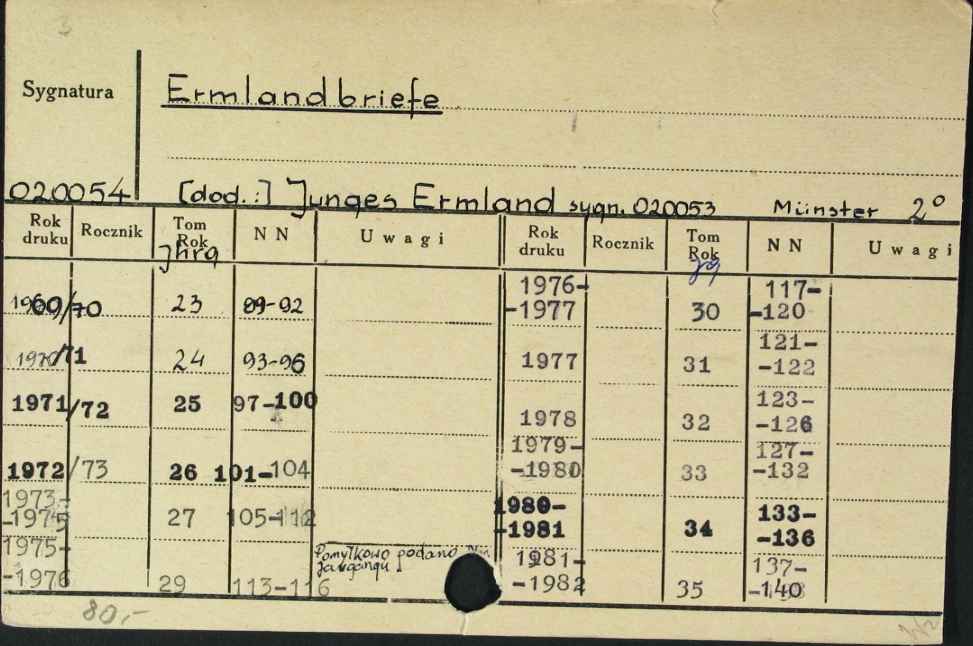 3
Sygnatura Ermlandbriefe
020054 [dod.:] Junges Ermland sygn. 020053 Münster 2°
Rok druku Rocznik Tom Rok NN Uwagi Rok druku Rocznik Tom Rok NN Uwagi
Jhrg Jg
1969/70 23 89-92
1970/71 24 93-96
1971/72 25 97-100
1972/73 26 101-104
1973--1975 27 105-112
1975--1976 29 113-116 Pomyłkowo podano
1976--1977 30 117--120
1977 31 121--122
1978 32 123--126
1979--1980 33 127--132
1980--1981 34 133--136
1981--1982 35 137--140
80,-